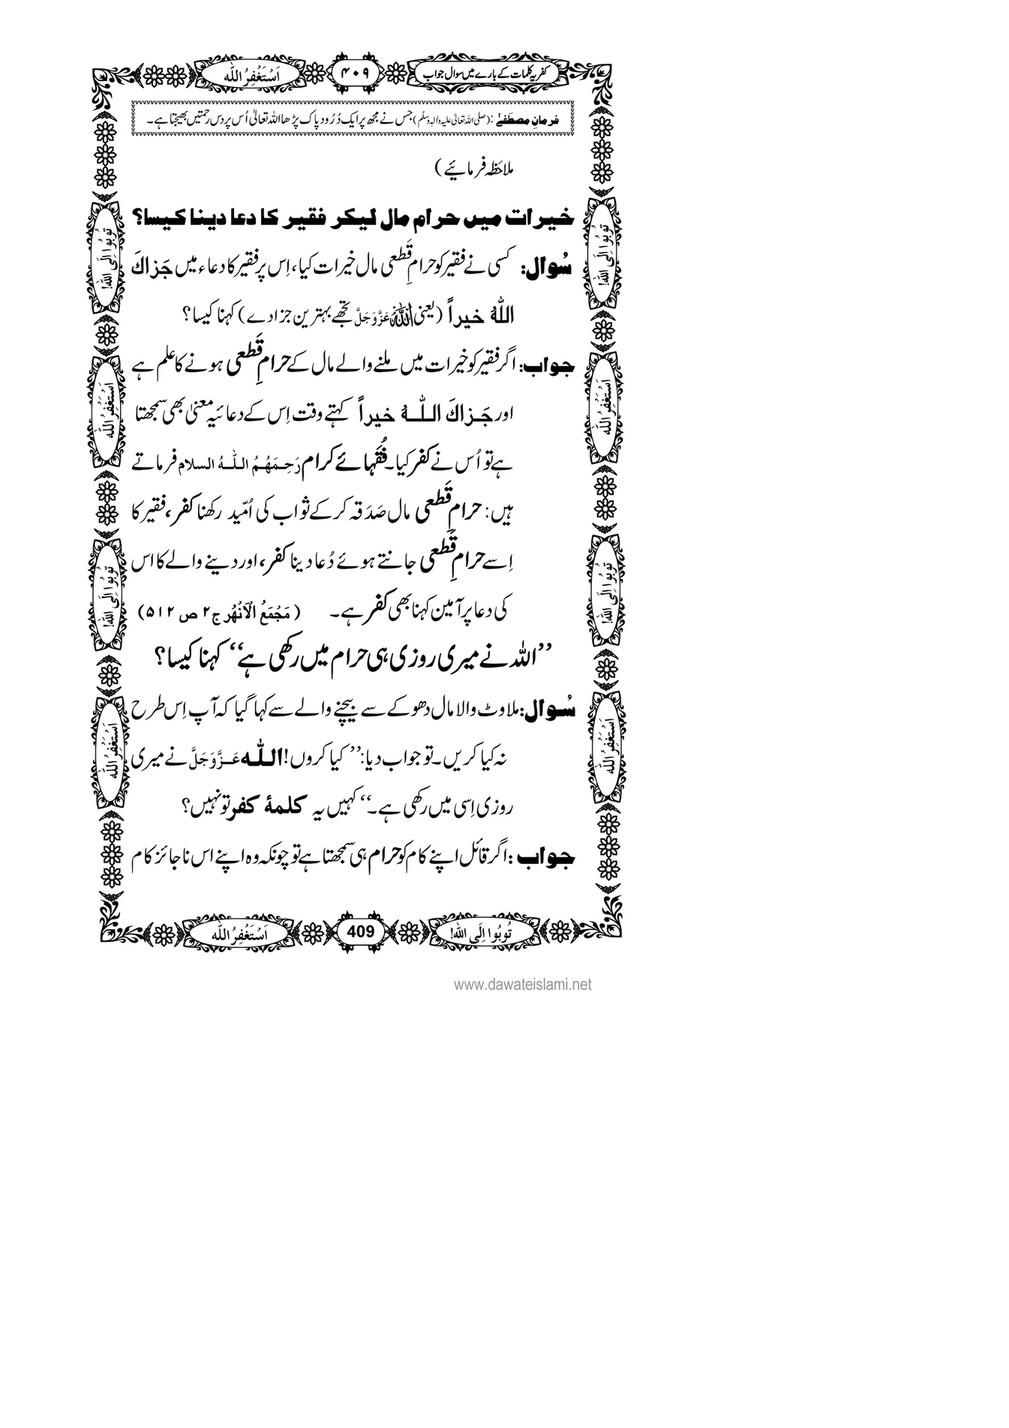 کفریہ کلمات کے بارے میں سوال جواب
۴۰۹
اَسْتَغْفِرُ اللہ
فرمانِ مصطَفٰے :(صلی اللہ تعالیٰ علیہ والہٖ وسلّم) جس نے مجھ پر ایک دُرُود پاک پڑھا اللہ تعالیٰ اُس پر دس رحمتیں بھیجتا ہے۔
ملاحَظہ فرمائیے)
خیرات میں حرام مال لیکر فقیر کا دعا دینا کیسا؟
سُوال: کسی نے فقیر کو حرامِ قَطعی مال خیرات کیا، اِس پر فقیر کا دعاء میں جَزاكَ
اللّٰهُ خیراً (یعنی اللہ عَزَّوَجَلَّ تجھے بہترین جزا دے) کہنا کیسا؟
جواب: اگر فقیر کو خیرات میں ملنے والے مال کے حرامِ قَطعی ہونے کا علم ہے
اور جَزاكَ اللّٰهُ خیراً کہتے وقت اِس کے دعائیہ معنیٰ بھی سمجھتا
ہے تو اُس نے کفر کیا۔ فُقَہائے کرام رَحِمَهُمُ اللّٰهُ السلام فرماتے
ہیں: حرامِ قَطعی مال صَدَقہ کر کے ثواب کی اُمّید رکھنا کفر، فقیر کا
اِسے حرامِ قَطعی جانتے ہوئے دُعا دینا کفر، اور دینے والے کا اس
کی دعا پر آمین کہنا بھی کفر ہے۔ (مَجْمَعُ الْاَنْهُر ج۲ ص ۵۱۲)
’’اللہ نے میری روزی ہی حرام میں رکھی ہے‘‘ کہنا کیسا؟
سُوال: ملاوٹ والا مال دھوکے سے بیچنے والے سے کہا گیا کہ آپ اِس طرح
نہ کیا کریں۔ تو جواب دیا: ’’کیا کروں! اللّٰه عَزَّوَجَلَّ نے میری
روزی اِسی میں رکھی ہے۔‘‘ کہیں یہ کلمۂ کفر تو نہیں؟
جواب: اگر قائل اپنے کام کو حرام ہی سمجھتا ہے تو چونکہ وہ اپنے اس ناجائز کام
تُوبُوا اِلَی اللہ!
اَسْتَغْفِرُ اللہ
تُوبُوا اِلَی اللہ!
اَسْتَغْفِرُ اللہ
تُوبُوا اِلَی اللہ!
اَسْتَغْفِرُ اللہ
تُوبُوا اِلَی اللہ!
اَسْتَغْفِرُ اللہ
تُوبُوا اِلَی اللہ!
409
اَسْتَغْفِرُ اللہ
www.dawateislami.net